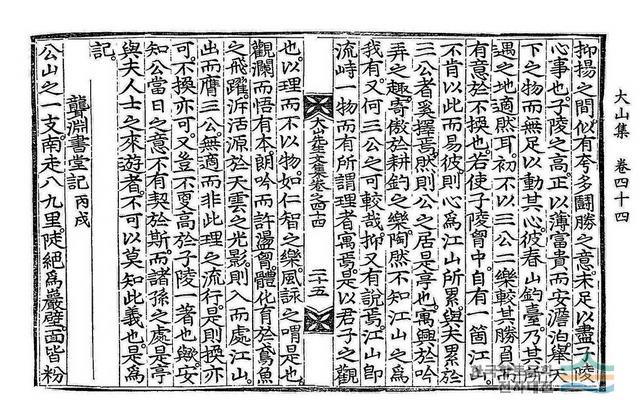 大山集 卷四十四
抑揚之間似有夸多鬪勝之意未足以盡子陵
心事也子陵之高正以薄富貴而安澹泊擧天
下之物而無足以動其心彼春山釣臺乃其所
遇之地適然耳初不以三公二樂較其勝負
有意於不換也若使子陵胷中自有一箇江山
不肯以此而易彼則心爲江山所累與夫累於
三公者奚擇焉然則公之居是亭也寓興於吟
弄之趣寄傲於耕釣之樂陶然不知江山之爲
我有又何三公之可較哉抑又有說焉江山卽
流峙一物而有所謂理者寓焉是以君子之觀
大山先生文集卷之四十四 二十五
也以理而不以物如仁智之樂風詠之喟是也
觀瀾而悟有本朗吟而許盪胷體化育於鳶魚
之飛躍泝活源於天雲之光影則入而處江山
出而膺三公無適而非此理之流行是則換亦
可不換亦可又豈不更高於子陵一著也歟安
知公當日之意不有契於斯而諸孫之處是亭
與夫人士之來遊者不可以莫知此義也是爲
記
龔淵書堂記 丙戌
公山之一支南走八九里陡絶爲巖壁面皆粉